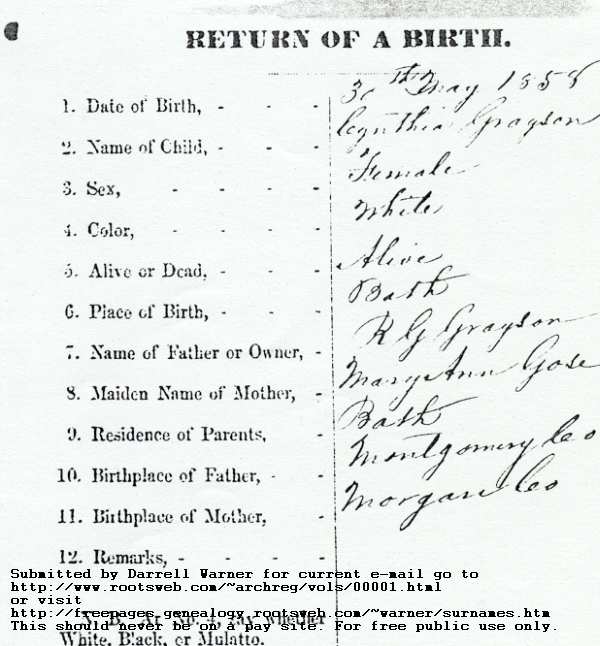 RETURN OF A BIRTH.
1. Date of Birth, - - - 30th May 1858
2. Name of Child, - - - Cynthia Grayson
3. Sex, - - - - Female
4. Color, - - - - White
5. Alive or Dead, - - - Alive
6. Place of Birth, - - - Bath
7. Name of Father or Owner, - R G Grayson
8. Maiden Name of Mother, - Mary Ann Gose
9. Residence of Parents, - Bath
10. Birthplace of Father, - - Montgomery Co
11. Birthplace of Mother, - Morgan Co
12. Remarks, - - - -
Submitted by Darrell Warner for current e-mail go to
http://www.rootsweb.com/~archreg/vols/00001.html
or visit
http://freepages.genealogy.rootsweb.com/~warner/surnames.htm
N. B. At No. 4, say whether
This should never be on a pay site. For free public use only.
White, Black, or Mulatto.